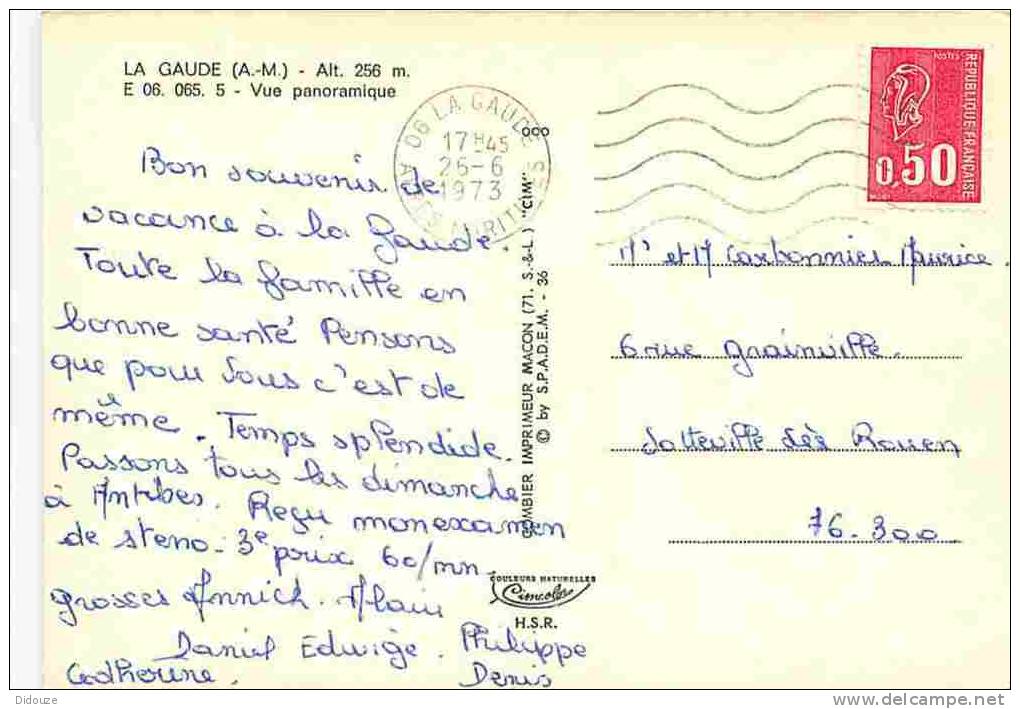 LA GAUDE (A.-M.) - Alt. 256 m.
E 06. 065. 5 - Vue panoramique
Bon souvenir de
vacance à la Gaude.
Toute la famille en
bonne santé Pensons
que pour Vous c'est de
même. Temps splendide.
Passons tous les dimanche
à Antibes. Reçu mon examen
de steno. 3e prix 60/mn.
grosses Annick. Alain
Daniel Edwige. Philippe
Catherine. Denis
06 LA GAUDE
17H45
26-6
1973
ALPES MARITIMES
COMBIER IMPRIMEUR MACON (71. S.-&-L.) "CIM"
© by S.P.A.D.E.M. - 36
COULEURS NATURELLES
Cimcolor
H.S.R.
POSTES
REPUBLIQUE FRANÇAISE
0,50
Mr et M Carbonnier Maurice.
6 rue Grainville.
Sotteville lès Rouen
76.300
Didouze
www.delcampe.net